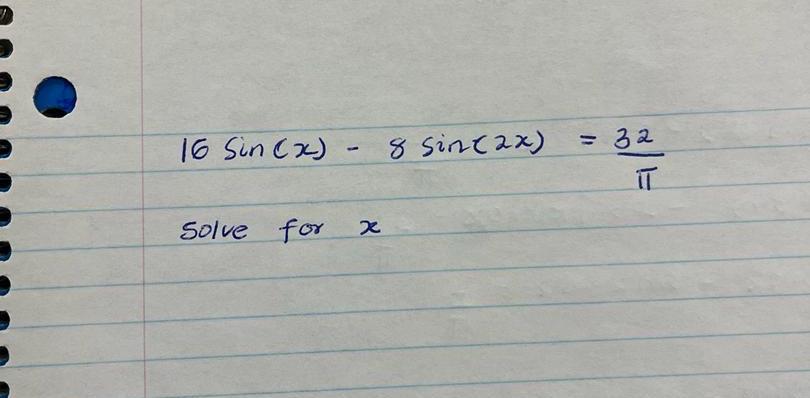 16 sin(x) - 8 sin(2x) = 32/π
Solve for x